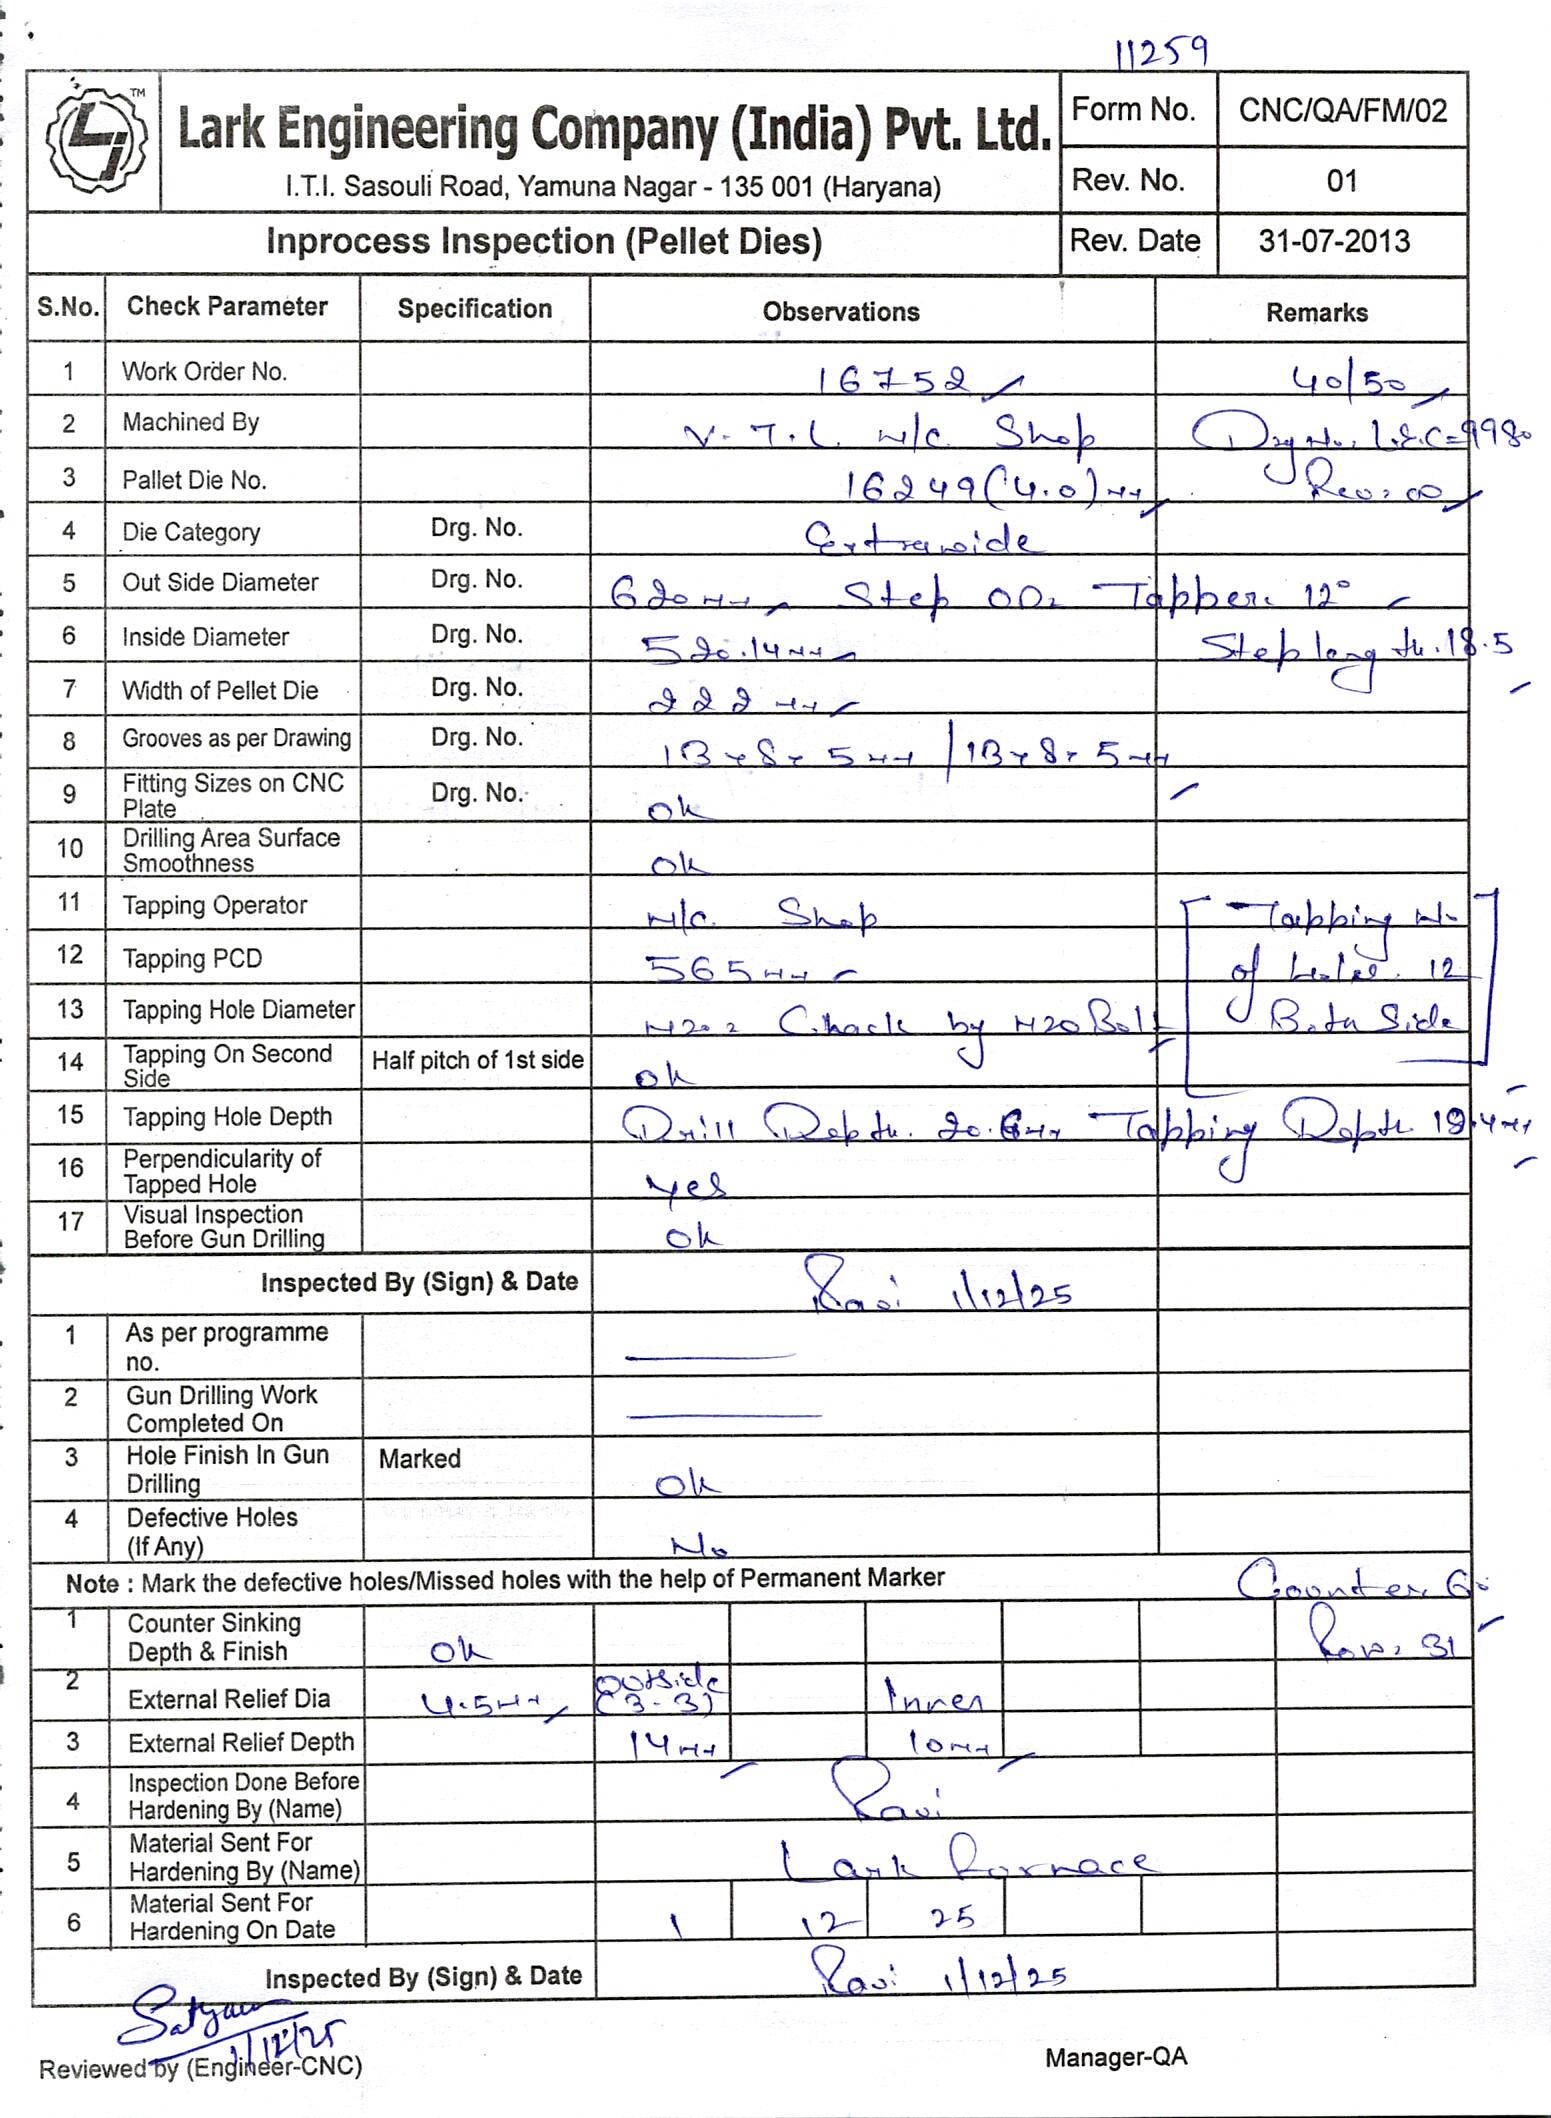 11259
TM
Lark Engineering Company (India) Pvt. Ltd.
I.T.I. Sasouli Road, Yamuna Nagar - 135 001 (Haryana)
Form No. CNC/QA/FM/02
Rev. No. 01
Inprocess Inspection (Pellet Dies) Rev. Date 31-07-2013
S.No. Check Parameter Specification Observations Remarks
1 Work Order No. 16752 40/50
2 Machined By V.T.L. M/C. Shop Drg No. L.E.C=9980
3 Pallet Die No. 16249(4.0)mm Rev: 00
4 Die Category Drg. No. Extrawide
5 Out Side Diameter Drg. No. 620mm Step OD= Tapper. 12°
6 Inside Diameter Drg. No. 520.14mm Step length.18.5
7 Width of Pellet Die Drg. No. 222mm
8 Grooves as per Drawing Drg. No. 13x8x5mm / 13x8x5mm
9 Fitting Sizes on CNC Plate Drg. No. ok
10 Drilling Area Surface Smoothness ok
11 Tapping Operator M/C. Shop Tapping No
12 Tapping PCD 565mm of 12
13 Tapping Hole Diameter M20= Chack by M20 Bolt Both Side
14 Tapping On Second Side Half pitch of 1st side ok
15 Tapping Hole Depth Drill Depth. 20.6mm Tapping Depth. .4mm
16 Perpendicularity of Tapped Hole yes
17 Visual Inspection Before Gun Drilling ok
Inspected By (Sign) & Date Ravi 1/12/25
1 As per programme no.
2 Gun Drilling Work Completed On
3 Hole Finish In Gun Drilling Marked ok
4 Defective Holes (If Any) No
Note : Mark the defective holes/Missed holes with the help of Permanent Marker Counter 60
1 Counter Sinking Depth & Finish ok Row= 31
2 External Relief Dia 4.5mm outside (3-3) Inner
3 External Relief Depth 14mm 10mm
4 Inspection Done Before Hardening By (Name) Ravi
5 Material Sent For Hardening By (Name) Lark Fornace
6 Material Sent For Hardening On Date 1 12 25
Inspected By (Sign) & Date Ravi 1/12/25
Satyam
1/12/25
Reviewed by (Engineer-CNC) Manager-QA